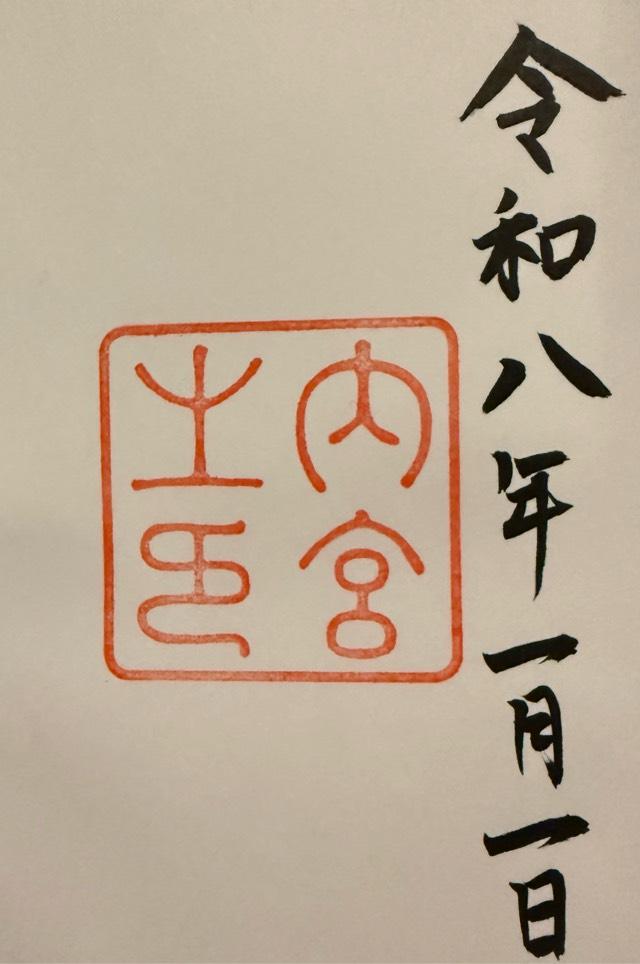 令和八年一月一日
内宮
之印